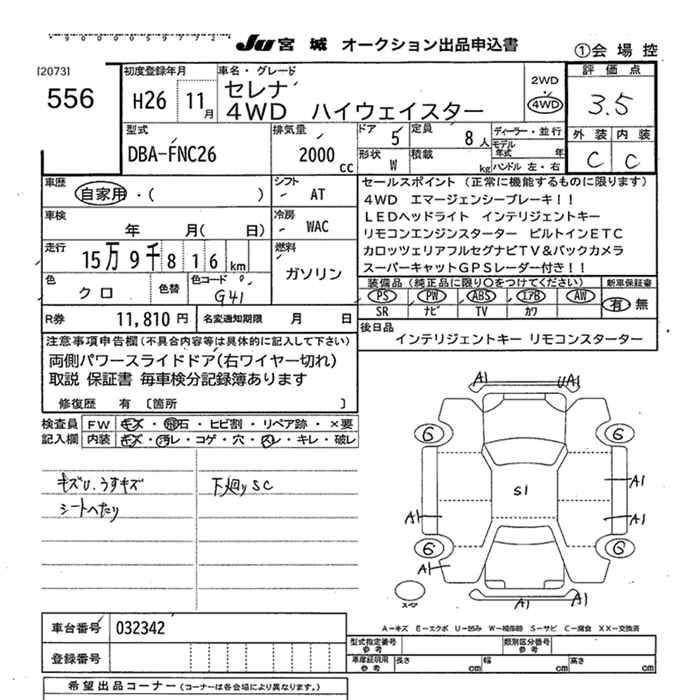 90000597 72
Ju 宮城 オークション出品申込書
①会場控
[2073]
556
初度登録年月
H26 11月
車名・グレード
セレナ
4WD ハイウェイスター
2WD
4WD
評価点
3.5
外装 内装
C C
型式
DBA-FNC26
排気量
2000 cc
ドア 5
定員 8人
形状 W
積載 kg
ディーラー・並行
モデル年式 年
ハンドル 左・右
車歴
自家用・( )
シフト
AT
車検
年 月( 日)
冷房
WAC
走行
15万9千816km
燃料
ガソリン
色
クロ
色替
色コード
G41
R券 11,810円
名変通知期限 月 日
セールスポイント (正常に機能するものに限ります)
4WD エマージェンシーブレーキ!!
LEDヘッドライト インテリジェントキー
リモコンエンジンスターター ビルトインETC
カロッツェリアフルセグナビTV&バックカメラ
スーパーキャットGPSレーダー付き!!
装備品 (純正品に限り○をつけてください)
新車保証書
PS PW ABS エアB AW
SR ナビ TV カワ
有 無
後日品
インテリジェントキー リモコンスターター
注意事項申告欄(不具合内容等は具体的に記入して下さい)
両側パワースライドドア(右ワイヤー切れ)
取説 保証書 毎車検分記録簿あります
修復歴 有 〔箇所 〕
検査員記入欄
FW キズ・飛石・ヒビ割・リペア跡・×要
内装 キズ・汚レ・コゲ・穴・スレ・キレ・破レ
キズU.うすキズ
シートへたり
下廻りSC
A1 UA1
6 6
S1
A1
A1 A1
6 6
A1
スペア
A−キズ E−エクボ U−凹み W−補修跡 S−サビ C−腐食 XX−交換済
車台番号 032342
登録番号
型式指定番号 参考
類別区分番号 参考
車庫証明用 参考
長さ cm
幅 cm
高さ cm
希望出品コーナー (コーナーは各会場により異なります。)